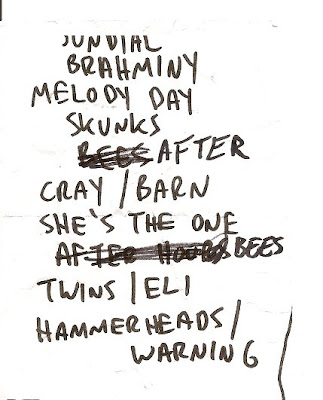 SUNDIAL
BRAHMINY
MELODY DAY
SKUNKS
BEES AFTER
CRAY / BARN
SHE'S THE ONE
AFTER HOURS BEES
TWINS / ELI
HAMMERHEADS /
WARNING